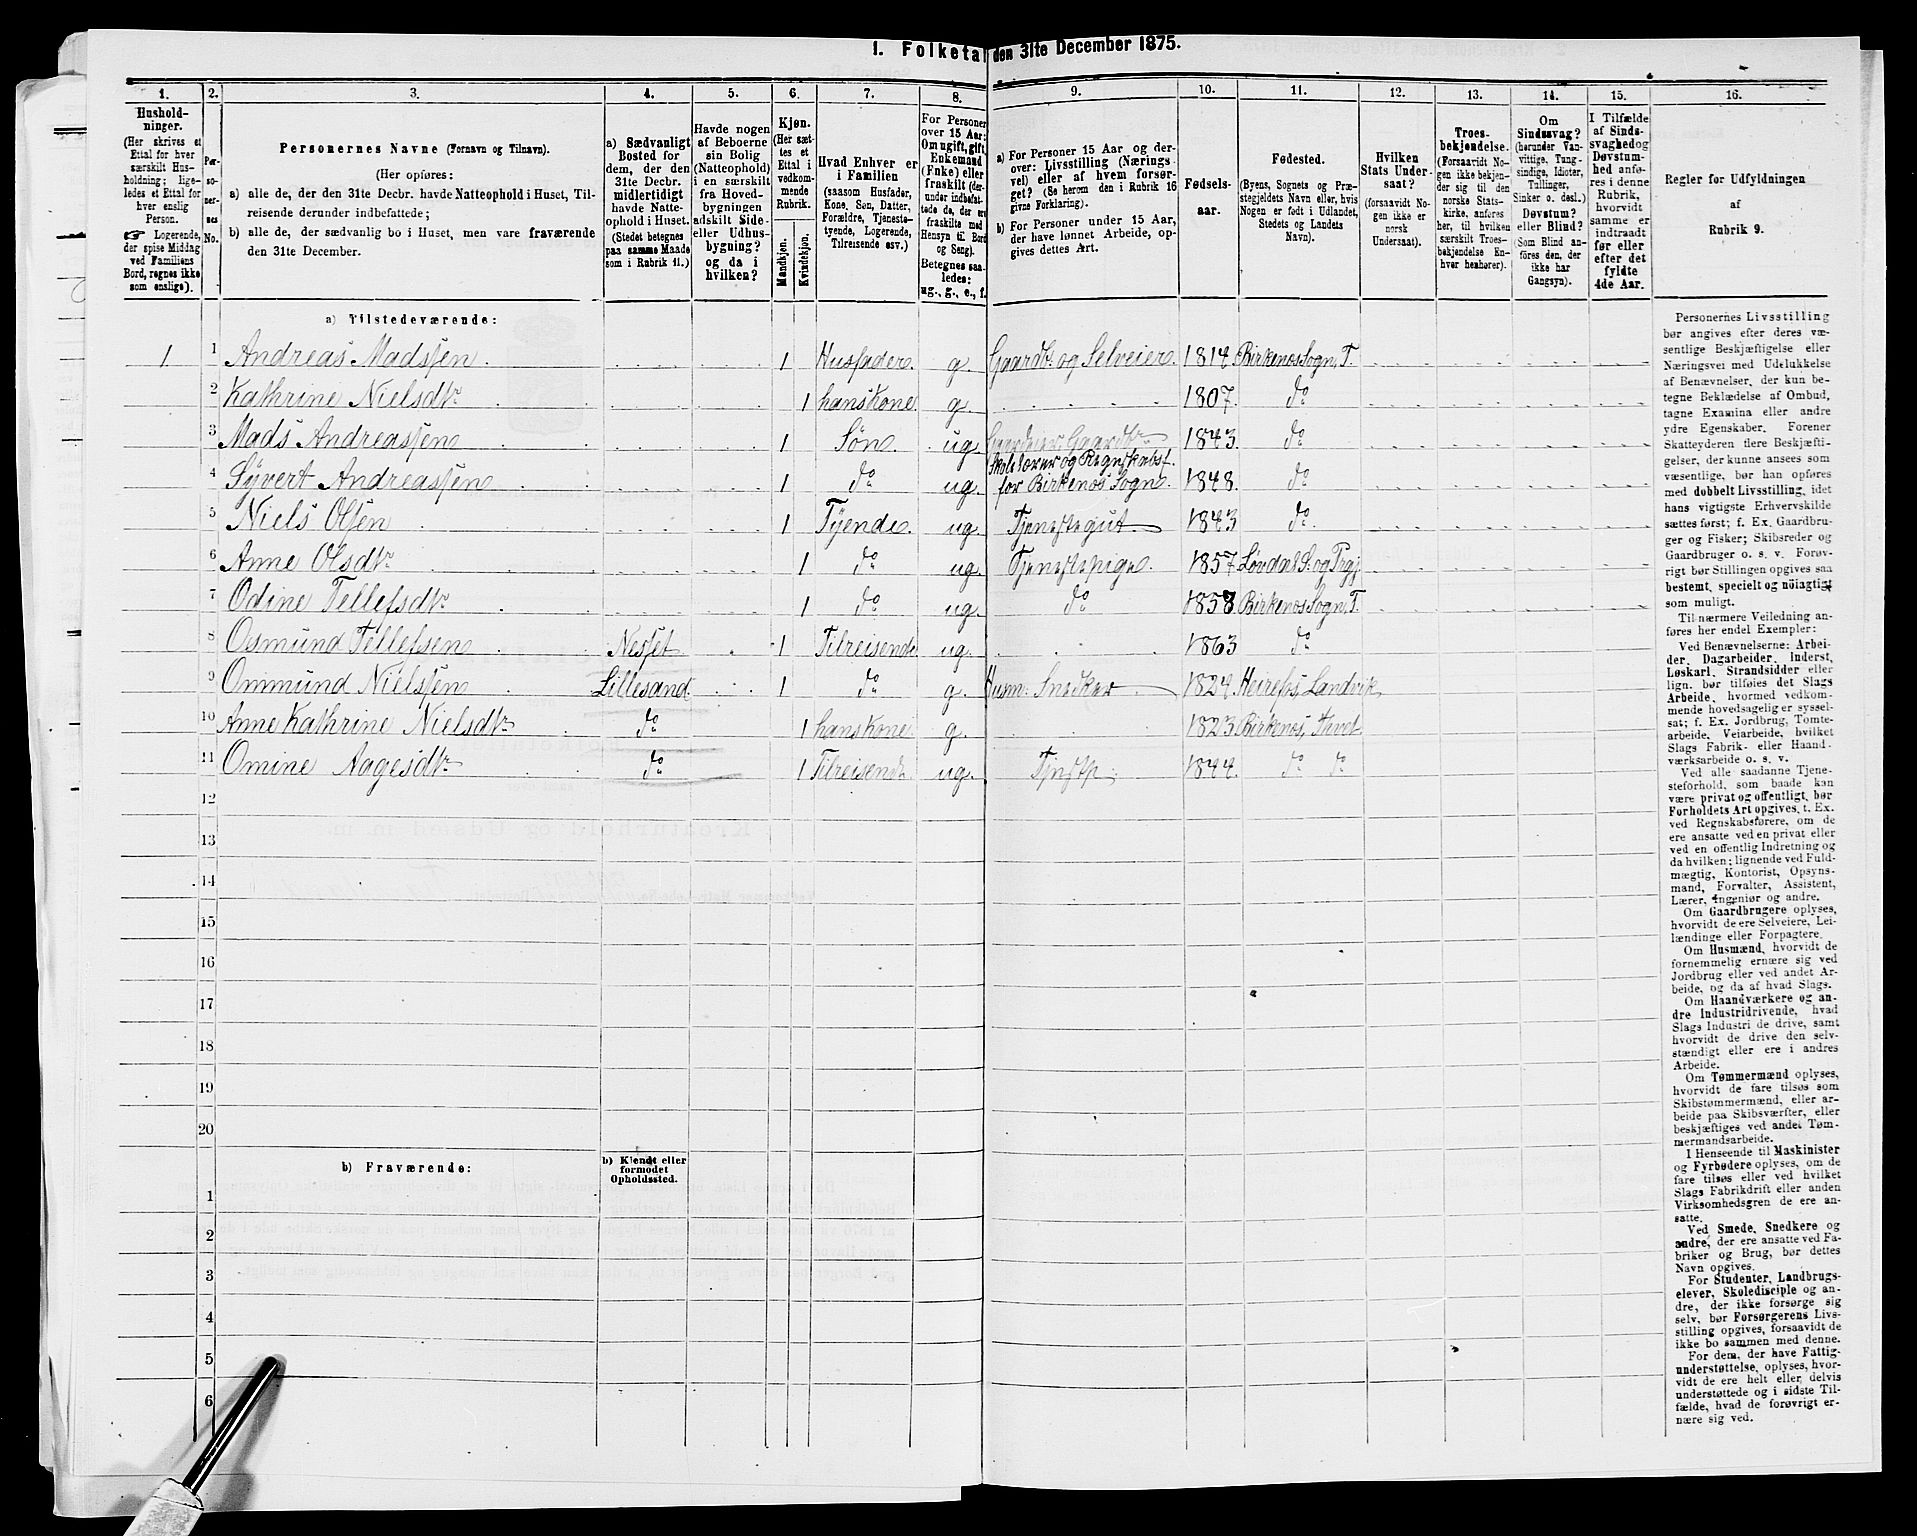 1. Folketal den 31te December 1875.
1. 2. 3. 4. 5. 6. 7. 8. 9. 10. 11. 12. 13. 14. 15. 16.
Hushold-
ninger.
(Her skrives et
Ettal for hver
særskilt Hus-
holdning; lige-
ledes et Ettal for
hver enslig
Person.
☞ Logerende,
der spise Middag
ved Familiens
Bord, regnes ikke
som enslige).
Per-
so-
ner-
nes
No.
Personernes Navne (Fornavn og Tilnavn).
(Her opføres:
a) alle de, der den 31te Decbr. havde Natteophold i Huset, Til-
reisende derunder indbefattede;
b) alle de, der sædvanlig bo i Huset, men vare fraværende
den 31te December.
a) Sædvanligt
Bosted for
dem, der den
31te Decbr.
midlertidigt
havde Natte-
ophold i Huset.
(Stedet betegnes
paa samme Maade
som i Rubrik 11.)
Havde nogen
af Beboerne
sin Bolig
(Natteophold)
i en særskilt
fra Hoved-
bygningen
adskilt Side-
eller Udhus-
bygning?
og da i
hvilken?
Kjøn.
(Her sæt-
tes et
Ettal i
vedkom-
mende
Rubrik.
Mandkjøn.
Kvindekjøn.
Hvad Enhver er
i Familien
(saasom Husfader,
Kone, Søn, Datter,
Forældre, Tjeneste-
tyende, Logerende,
Tilreisende osv.)
For Personer
over 15 Aar:
Om ugift, gift,
Enkemand
(Enke) eller
fraskilt (der-
under indbefat-
tede de, der ere
fraskilte med
Hensyn til Bord
og Seng).
Betegnes saa-
ledes:
ug., g., e., f.
a) For Personer 15 Aar og der-
over: Livsstilling (Nærings-
vei) eller af hvem forsør-
get? (Se herom den i Rubrik 16
givne Forklaring).
b) For Personer under 15 Aar,
der have lønnet Arbeide, op-
gives dettes Art.
Fødsels-
aar.
Fødested.
(Byens, Sognets og Præ-
stegjeldets Navn eller, hvis
Nogen er født i Udlandet,
Stedets og Landets
Navn).
Hvilken
Stats Under-
saat?
(forsaavidt No-
gen ikke er
norsk
Undersaat).
Troes-
bekjendelse.
(Forsaavidt No-
gen ikke bekjen-
der sig til den
norske Stats-
kirke, anføres
her, til hvilken
særskilt Troes-
bekjendelse En-
hver henhører).
Om
Sindssvag?
(herunder Van-
vittige, Tung-
sindige, Idioter,
Tullinger,
Sinker o. desl.)
Døvstum?
eller Blind?
(Som Blind an-
føres den, der
ikke har
Gangsyn).
I Tilfælde
af Sinds-
svaghed og
Døvstum-
hed anfø-
res i denne
Rubrik,
hvorvidt
samme er
indtraadt
før eller
efter det
fyldte
4de Aar.
Regler for Udfyldningen
af
Rubrik 9.
a) Tilstedeværende:
1 1 Andreas Madssen 1 Husfader g. Gaardb. og Selveier 1814 Birkenes Sogn, T.
2 Kathrine Nielsdtr 1 hans Kone g. 1807. do
3 Mads Andreassen 1 Søn ug. Gaardbr 1843. do
4 Syvert Andreassen 1 do ug. Skolelærer og Regnskabsf. for Birkenes Sogn. 1848. do
5 Niels Olsen 1 Tyende ug. Tjenestegut 1843 do
6 Anne Olsdtr 1 do ug. Tjenestepige. 1857 Løvdal S. og Prgj.
7 Odine Tellefsdtr 1 do ug. do 1858 Birkenes Sogn, T.
8 Osmund Tellefsen Nesset 1 Tilreisende ug. 1863 do
9 Ommund Nielssen Lillesand 1 do g. Husm: Snedker 1824. Heirefos Landvik
10 Anne Kathrine Nielsdtr do 1 hans Kone g. 1823. Birkenes, Tavet
11 Omine Aagesdtr do 1 Tilreisende ug. Tjnstp; 1844. do do
12
13
14
15
16
17
18
19
20
b) Fraværende:
b) Kjendt eller
formodet
Opholdssted.
1
2
3
4
5
6
Personernes Livsstilling
bør angives efter deres væ-
sentlige Beskjæftigelse eller
Næringsvei med Udelukkelse
af Benævnelser, der kun be-
tegne Beklædelse af Ombud,
tagne Examina eller andre
ydre Egenskaber. Forener
Skatteyderen flere Beskjæfti-
gelser, der kunne ansees som
væsentlige, bør han opføres
med dobbelt Livsstilling, idet
hans vigtigste Erhvervskilde
sættes først; f. Ex. Gaardbru-
ger og Fisker; Skibsreder og
Gaardbruger o. s. v. Forøv-
rigt bør Stillingen opgives saa
bestemt, specielt og nøiagtigt
som muligt.
Til nærmere Veiledning an-
føres her endel Exempler:
Ved Benævnelserne: Arbei-
der, Dagarbeider, Inderst,
Løskarl, Strandsidder eller
lign. bør tilføies det Slags
Arbeide, hvormed vedkom-
mende hovedsagelig er syssel-
sat; f. Ex. Jordbrug, Tomte-
arbeide, Veiarbeide, hvilket
Slags Fabrik- eller Haand-
værksarbeide o. s. v.
Ved alle saadanne Tjene-
steforhold, som baade kan
være privat og offentligt, bør
Forholdets Art opgives, t. Ex.
ved Regnskabsførere, om de
ere ansatte ved en privat eller
ved en offentlig Indretning og
da hvilken; lignende ved Fuld-
mægtig, Kontorist, Opsyns-
mand, Forvalter, Assistent,
Lærer, Ingeniør og andre.
Om Gaardbrugere oplyses,
hvorvidt de ere Selveiere, Lei-
lændinge eller Forpagtere.
Om Husmænd, hvorvidt de
fornemmelig ernære sig ved
Jordbrug eller ved andet Ar-
beide, og da af hvad Slags.
Om Haandværkere og an-
dre Industridrivende, hvad
Slags Industri de drive, samt
hvorvidt de drive den selv-
stændigt eller ere i andres
Arbeide.
Om Tømmermænd oplyses,
hvorvidt de fare tilsøs som
Skibstømmermænd, eller ar-
beide paa Skibsværfter, eller
beskjæftiges ved andet Tøm-
mermandsarbeide.
I Henseende til Maskinister
og Fyrbødere oplyses, om de
fare tilsøs eller ved hvilket
Slags Fabrikdrift eller anden
Virksomhedsgren de ere an-
satte.
Ved Smede, Snedkere og
andre, der ere ansatte ved Fa-
briker og Brug, bør dettes
Navn opgives.
For Studenter, Landbrugs-
elever, Skoledisciple og an-
dre, der ikke forsørge sig
selv, bør Forsørgerens Livs-
stilling opgives, forsaavidt de
ikke bo sammen med denne.
For dem, der have Fattig-
understøttelse, oplyses, hvor-
vidt de ere helt eller delvis
understøttede og i sidste Til-
fælde, hvad de forøvrigt er-
nære sig ved.